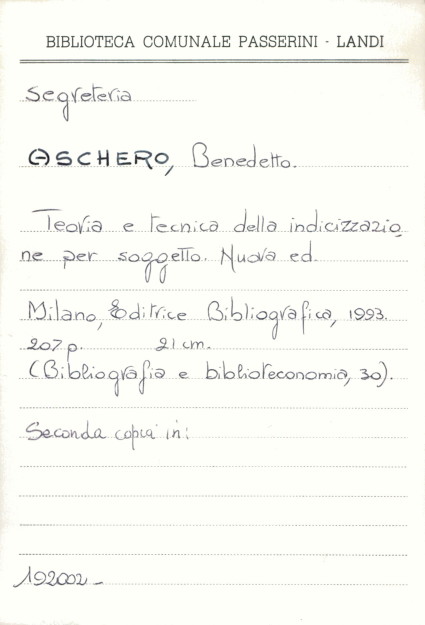 BIBLIOTECA COMUNALE PASSERINI - LANDI
Segreteria
ASCHERO, Benedetto.
Teoria e tecnica della indicizzazio
ne per soggetto. Nuova ed.
Milano, Editrice Bibliografica, 1993.
207 p. 21 cm.
(Bibliografia e biblioteconomia, 30).
Seconda copia in:
192002 -